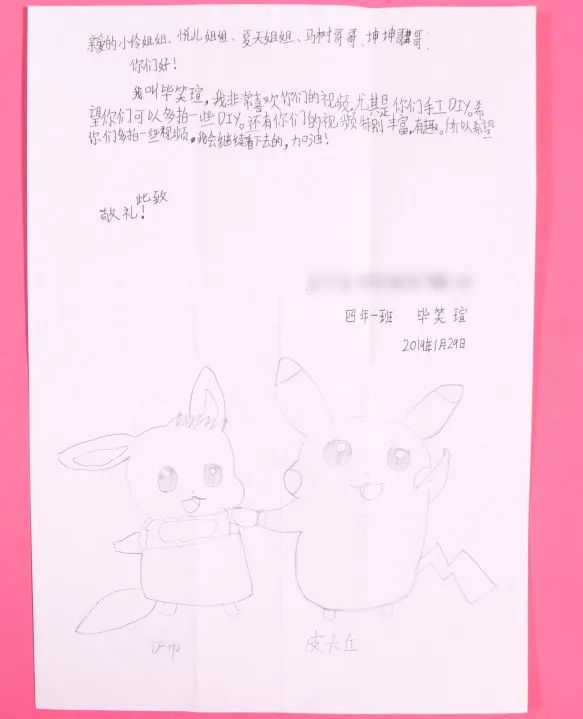 亲爱的小伶姐姐、悦儿姐姐、夏天姐姐、马树哥哥、坤坤哥哥:
你们好!
我叫毕笑瑄,我非常喜欢你们的视频,尤其是你们手工DIY。希
望你们可以多拍一些DIY。还有你们的视频特别丰富,有趣。所以希望
你们多拍一些视频,我会继续看下去的,加油!
此致
敬礼!
四年一班 毕笑瑄
2019年1月29日
皮卡丘